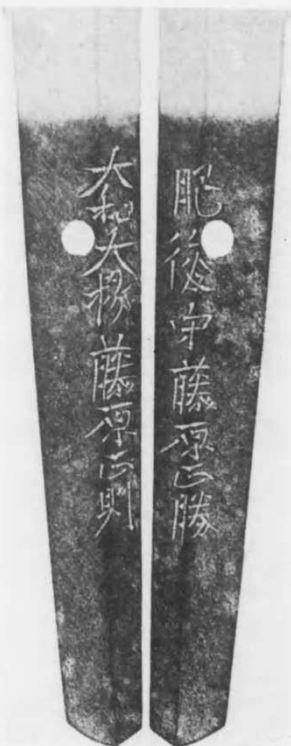 肥後守藤原正勝
大和大掾藤原正則